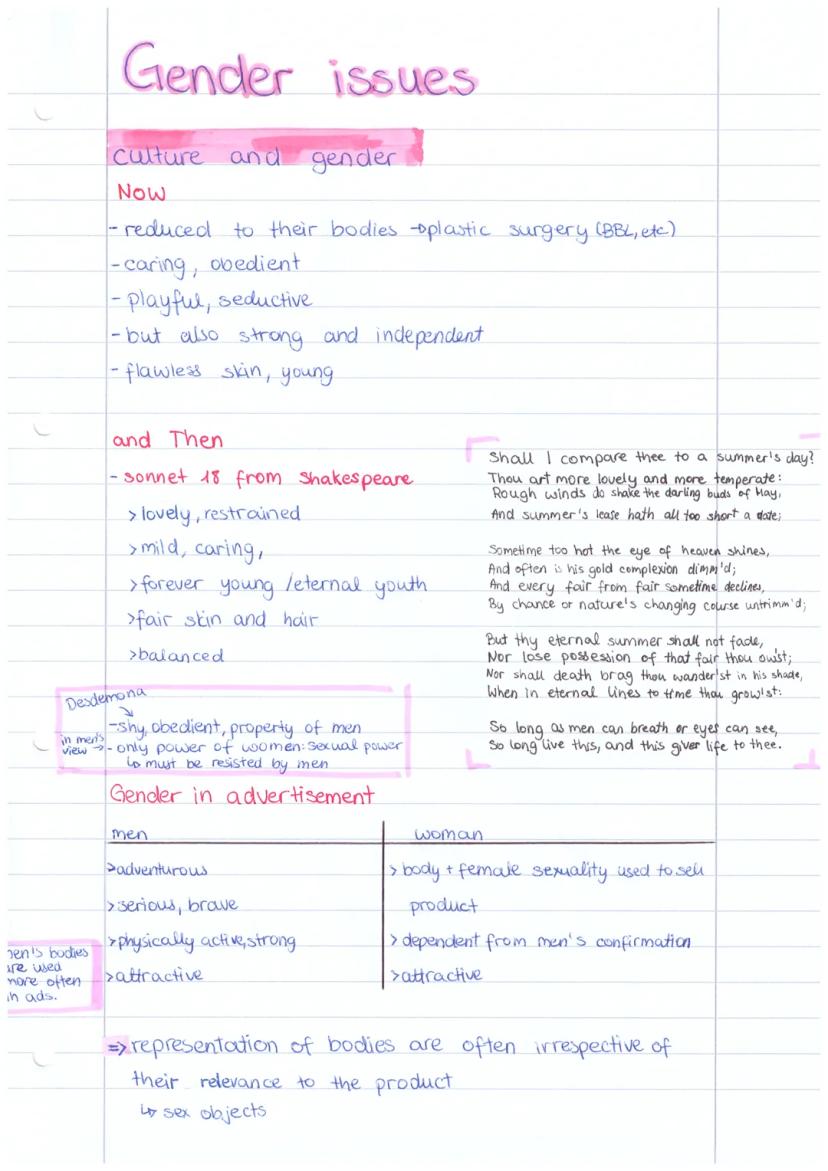 Gender issues
culture and gender
Now
- reduced to their bodies → plastic surgery (BBL, etc)
- caring, obedient
- playful, seductive
- but also strong and independent
- flawless skin, young
and Then
- sonnet 18 from Shakespeare
> lovely, restrained
> mild, caring,
> forever young / eternal youth
> fair skin and hair
> balanced
Shall I compare thee to a summer's day?
Thou art more lovely and more temperate:
Rough winds do shake the darling buds of May,
And summer's lease hath all too short a date;
Sometime too hot the eye of heaven shines,
And often is his gold complexion dimm'd;
And every fair from fair sometime declines,
By chance or nature's changing course untrimm'd;
But thy eternal summer shall not fade,
Nor lose possession of that fair thou ow'st;
Nor shall death brag thou wander'st in his shade,
When in eternal lines to time thou grow'st:
So long as men can breath or eyes can see,
So long live this, and this giver life to thee.
Desdemona
↘
- shy, obedient, property of men
in men's view → - only power of women: sexual power
↳ must be resisted by men
Gender in advertisement
men woman
> adventurous
> serious, brave
> physically active, strong
> attractive
> body + female sexuality used to sell
product
> dependent from men's confirmation
> attractive
men's bodies
are used
more often
in ads.
⇒ representation of bodies are often irrespective of
their relevance to the product
↳ sex objects